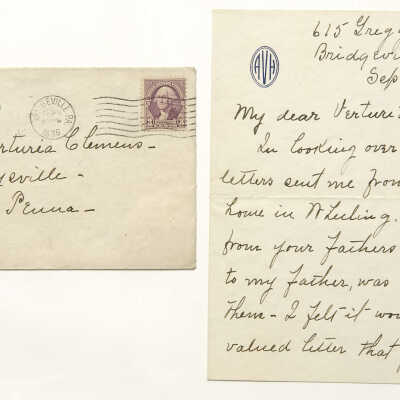 BRIDGEVILLE, PA.
3 3
Clemens -
Penna -
AVH
615 Greg
Bridgevi
Sep
My dear Verturi
In looking over
letters sent me from
home in Wheeling.
from your fathers
to my father, was
them - I felt it wou
valued letter that